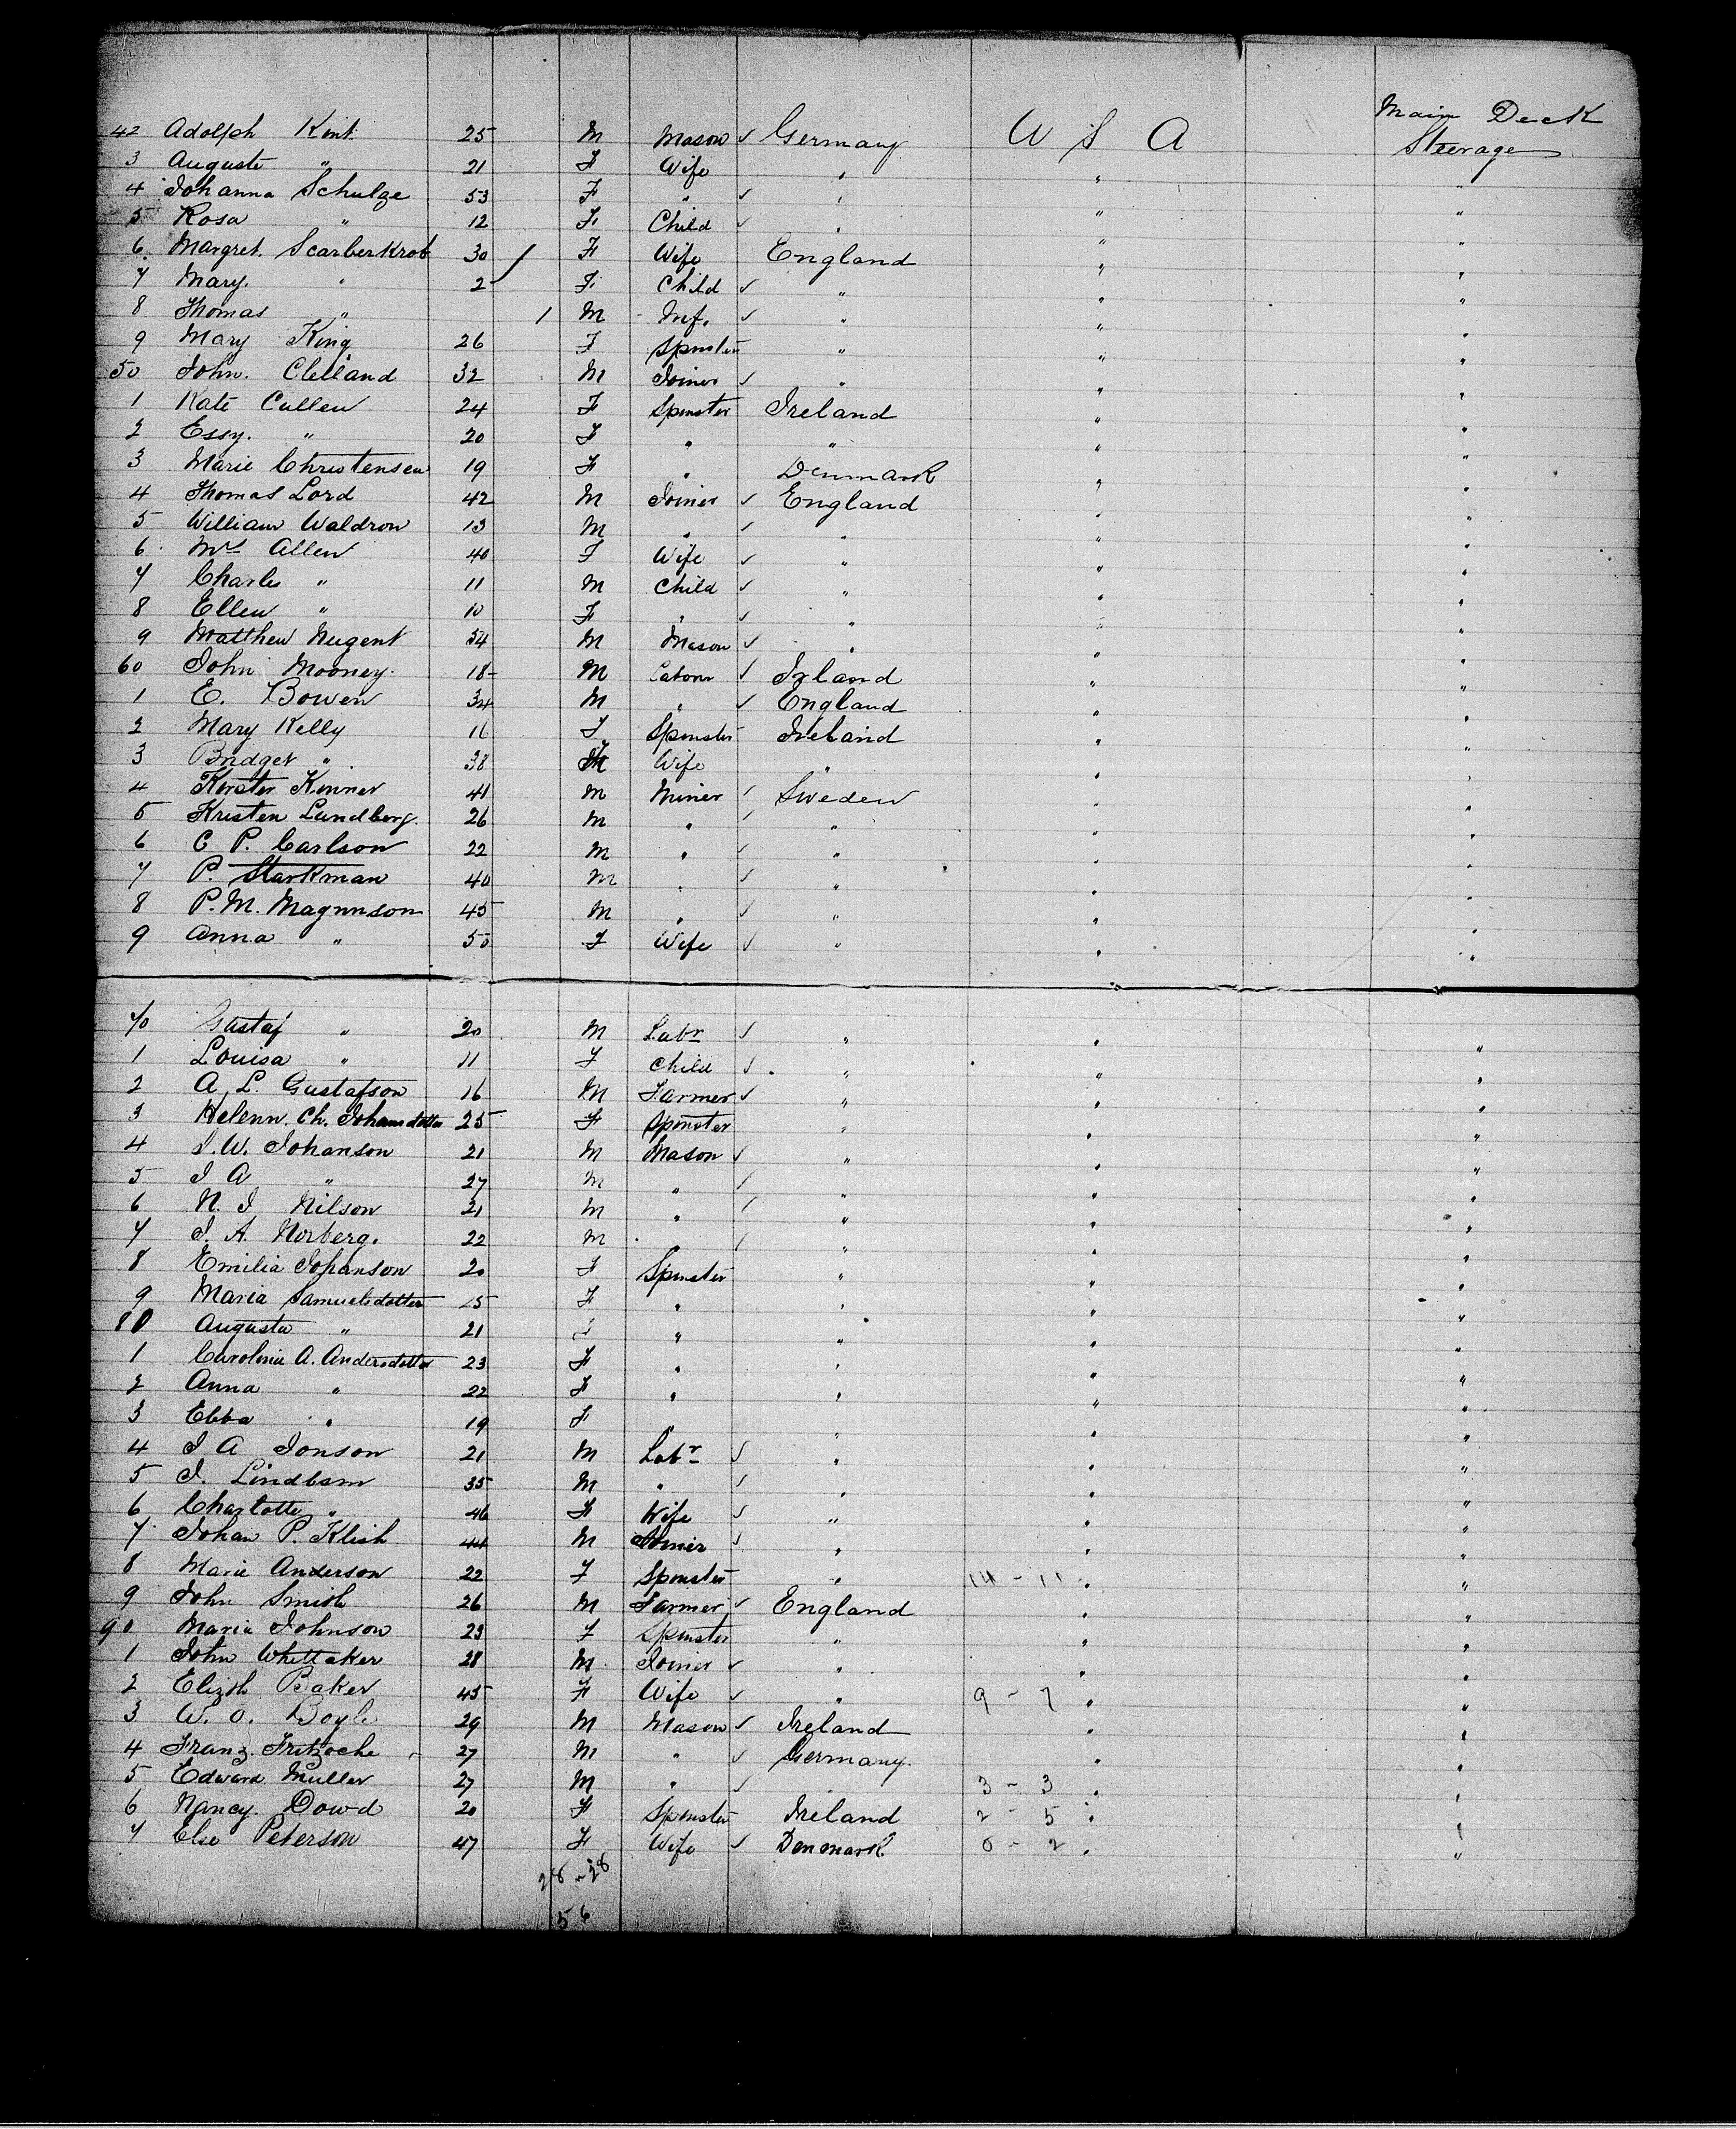 Main Deck
42 Adolph Kint 25 M Mason ✓ Germany U S A Steerage
3 Auguste " 21 F Wife " " "
4 Johanna Schulze 53 F " ✓ " " "
5 Rosa " 12 F Child ✓ " " "
6 Margret. Scarberkrot 30 F Wife England " "
7 Mary. " 2 F Child ✓ " " "
8 Thomas " 1 M Inf. ✓ " " "
9 Mary King 26 F Spinster " " "
50 John. Clelland 32 M Joiner ✓ " " "
1 Kate Cullen 24 F Spinster Ireland " "
2 Essy. " 20 F " " " "
3 Marie Christensen 19 F " Denmark " "
4 Thomas Lord 42 M Joiner ✓ England " "
5 William Waldron 13 M " ✓ " " "
6 Mrs Allen 40 F Wife ✓ " " "
7 Charles " 11 M Child ✓ " " "
8 Ellen " 10 F " ✓ " " "
9 Matthew Nugent 54 M Mason ✓ " " "
60 John Mooney. 18 M Labour ✓ Irland " "
1 E. Bowen 34 M " ✓ England " "
2 Mary Kelly 16 F Spinster Ireland " "
3 Bridget " 38 F Wife " " "
4 Kerster Kinner 41 M Miner ✓ Sweden " "
5 Kristen Lundberg. 26 M " ✓ " " "
6 C P. Carlson 22 M " ✓ " " "
7 P. Starkman 40 M " ✓ " " "
8 P. M. Magnnson 45 M " ✓ " " "
9 Anna " 50 F Wife ✓ " " "
70 Gustaf " 20 M Labr ✓ " " "
1 Louisa " 11 F Child ✓ " " "
2 A. L. Gustafson 16 M Farmer ✓ " " "
3 Helenn. Ch. Johansdotter 25 F Spinster " " "
4 J. W. Johanson 21 M Mason ✓ " " "
5 J A " 27 M " ✓ " " "
6 N. J Nilson 21 M " ✓ " " "
7 J. A. Norberg. 22 M " ✓ " " "
8 Emilia Johanson 20 F Spinster " " "
9 Maria Samuelsdotter 25 F " " " "
80 Augusta " 21 F " " " "
1 Carolina A. Andersdotter 23 F " " " "
2 Anna " 22 F " " " "
3 Ebba " 19 F " " " "
4 J A Jonson 21 M Labr ✓ " " "
5 J. Lindbom 35 M " ✓ " " "
6 Charlotte " 46 F Wife ✓ " " "
7 Johan P. Klish 44 M Joiner ✓ " " "
8 Marie Anderson 22 F Spinster " 14 - 11 " "
9 John Smith 26 M Farmer ✓ England " "
90 Maria Johnson 23 F Spinster " " "
1 John Whittaker 28 M Joiner ✓ " " "
2 Elizth Baker 45 F Wife ✓ " 9 - 7 " "
3 W. O. Boyle 29 M Mason ✓ Ireland " "
4 Franz. Fritzoche 27 M " ✓ Germany. " "
5 Edward Muller 27 M " ✓ " 3 - 3 " "
6 Nancy. Dowd 20 F Spinster Ireland 2 - 5 " "
7 Else Peterson 47 F Wife ✓ Denmark 0 - 2 " "
28 - 28
56